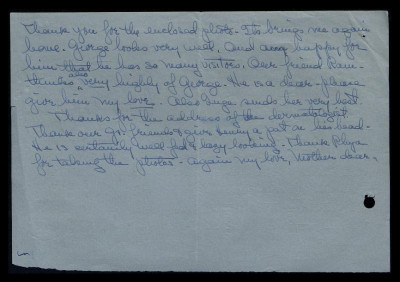 Thank you for the enclosed photos. Its brings me again
home. George looks very well, and am happy for
him that he has so many visitors. Our friend
thinks also very highly of George. He is a dear - please
give him my love. Also sends her very best
Thanks for the address of the dermatologist
Thank our friends & give Henry a pat on his head.
He is certainly well-fed & lazy looking. Thank
for taking the photos. Again my love, Mother dear,